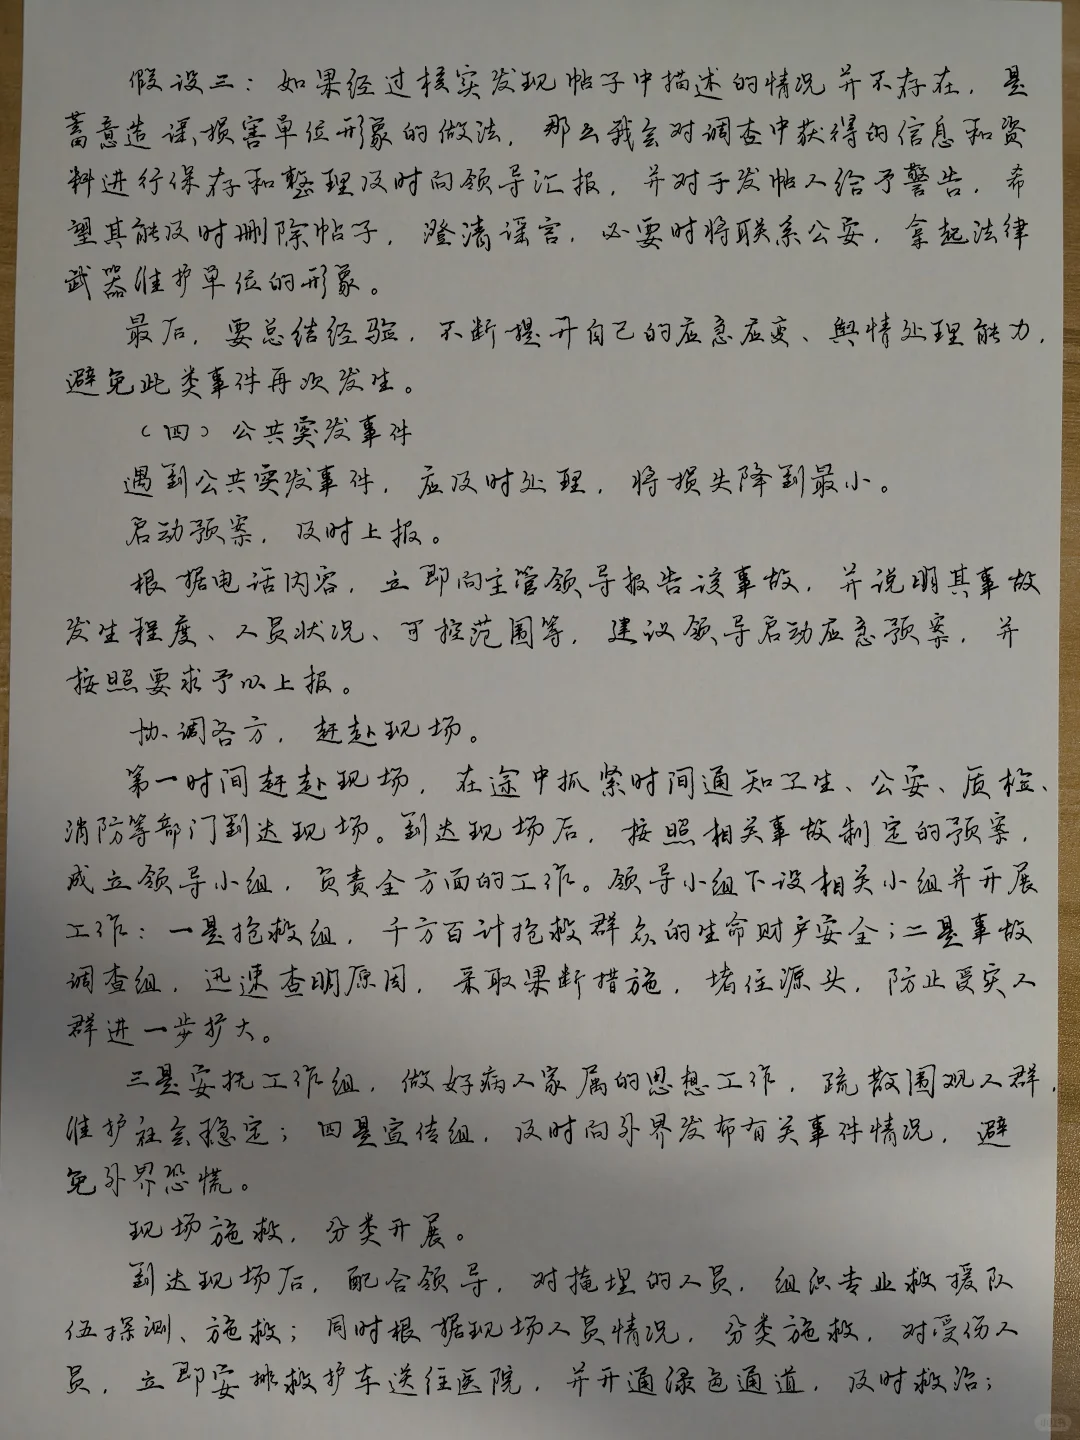 假设三：如果经过核实发现帖子中描述的情况并不存在，是
蓄意造谣损害单位形象的做法，那么我会对调查中获得的信息和资
料进行保存和整理及时向领导汇报，并对于发帖人给予警告，希
望其能及时删除帖子，澄清谣言，必要时将联系公安，拿起法律
武器维护单位的形象。
最后，要总结经验，不断提升自己的应急应变、舆情处理能力，
避免此类事件再次发生。
（四）公共突发事件
遇到公共突发事件，应及时处理，将损失降到最小。
启动预案，及时上报。
根据电话内容，立即向主管领导报告该事故，并说明其事故
发生程度、人员状况、可控范围等，建议领导启动应急预案，并
按照要求予以上报。
协调各方，赶赴现场。
第一时间赶赴现场，在途中抓紧时间通知卫生、公安、质检、
消防等部门到达现场。到达现场后，按照相关事故制定的预案，
成立领导小组，负责全方面的工作。领导小组下设相关小组并开展
工作：一是抢救组，千方百计抢救群众的生命财产安全；二是事故
调查组，迅速查明原因，采取果断措施，堵住源头，防止受灾人
群进一步扩大。
三是安抚工作组，做好病人家属的思想工作，疏散围观人群，
维护社会稳定；四是宣传组，及时向外界发布有关事件情况，避
免外界恐慌。
现场施救，分类开展。
到达现场后，配合领导，对掩埋的人员，组织专业救援队
伍探测、施救；同时根据现场人员情况，分类施救，对受伤人
员，立即安排救护车送往医院，并开通绿色通道，及时救治；
小红书